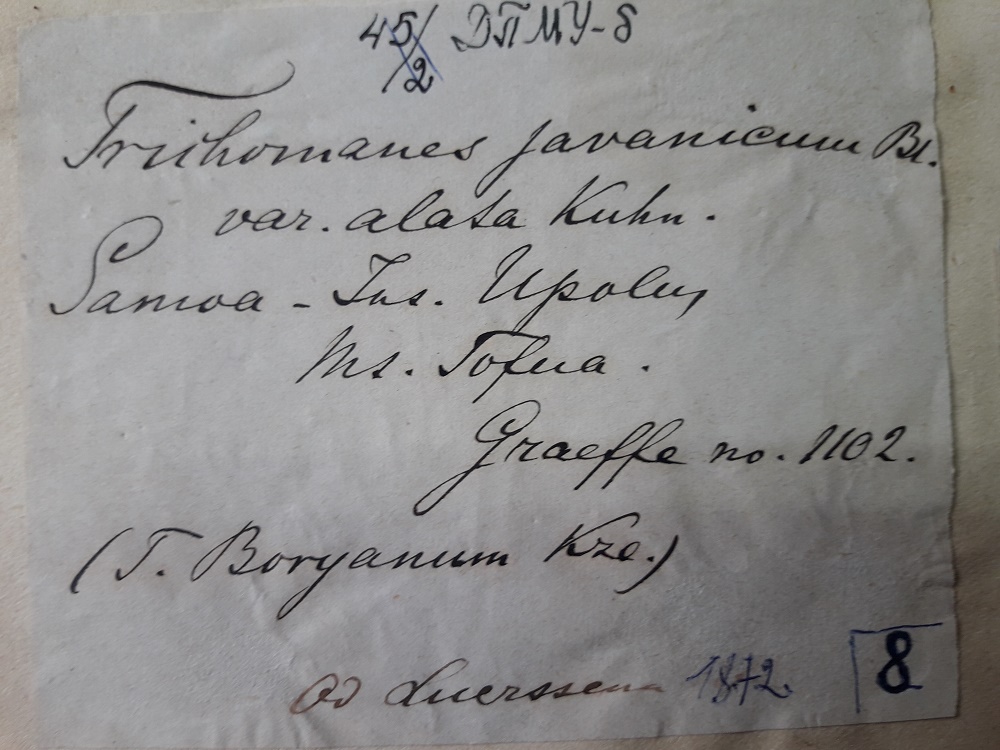 45/2 ДПМУ-б
Trichomanes javanicum Bl.
var. alata Kuhn.
Samoa - Ins. Upolu,
Ms. Tofua.
Graeffe no. 1102.
(T. Boryanum Kze.)
Od Luerssena 1872.
8